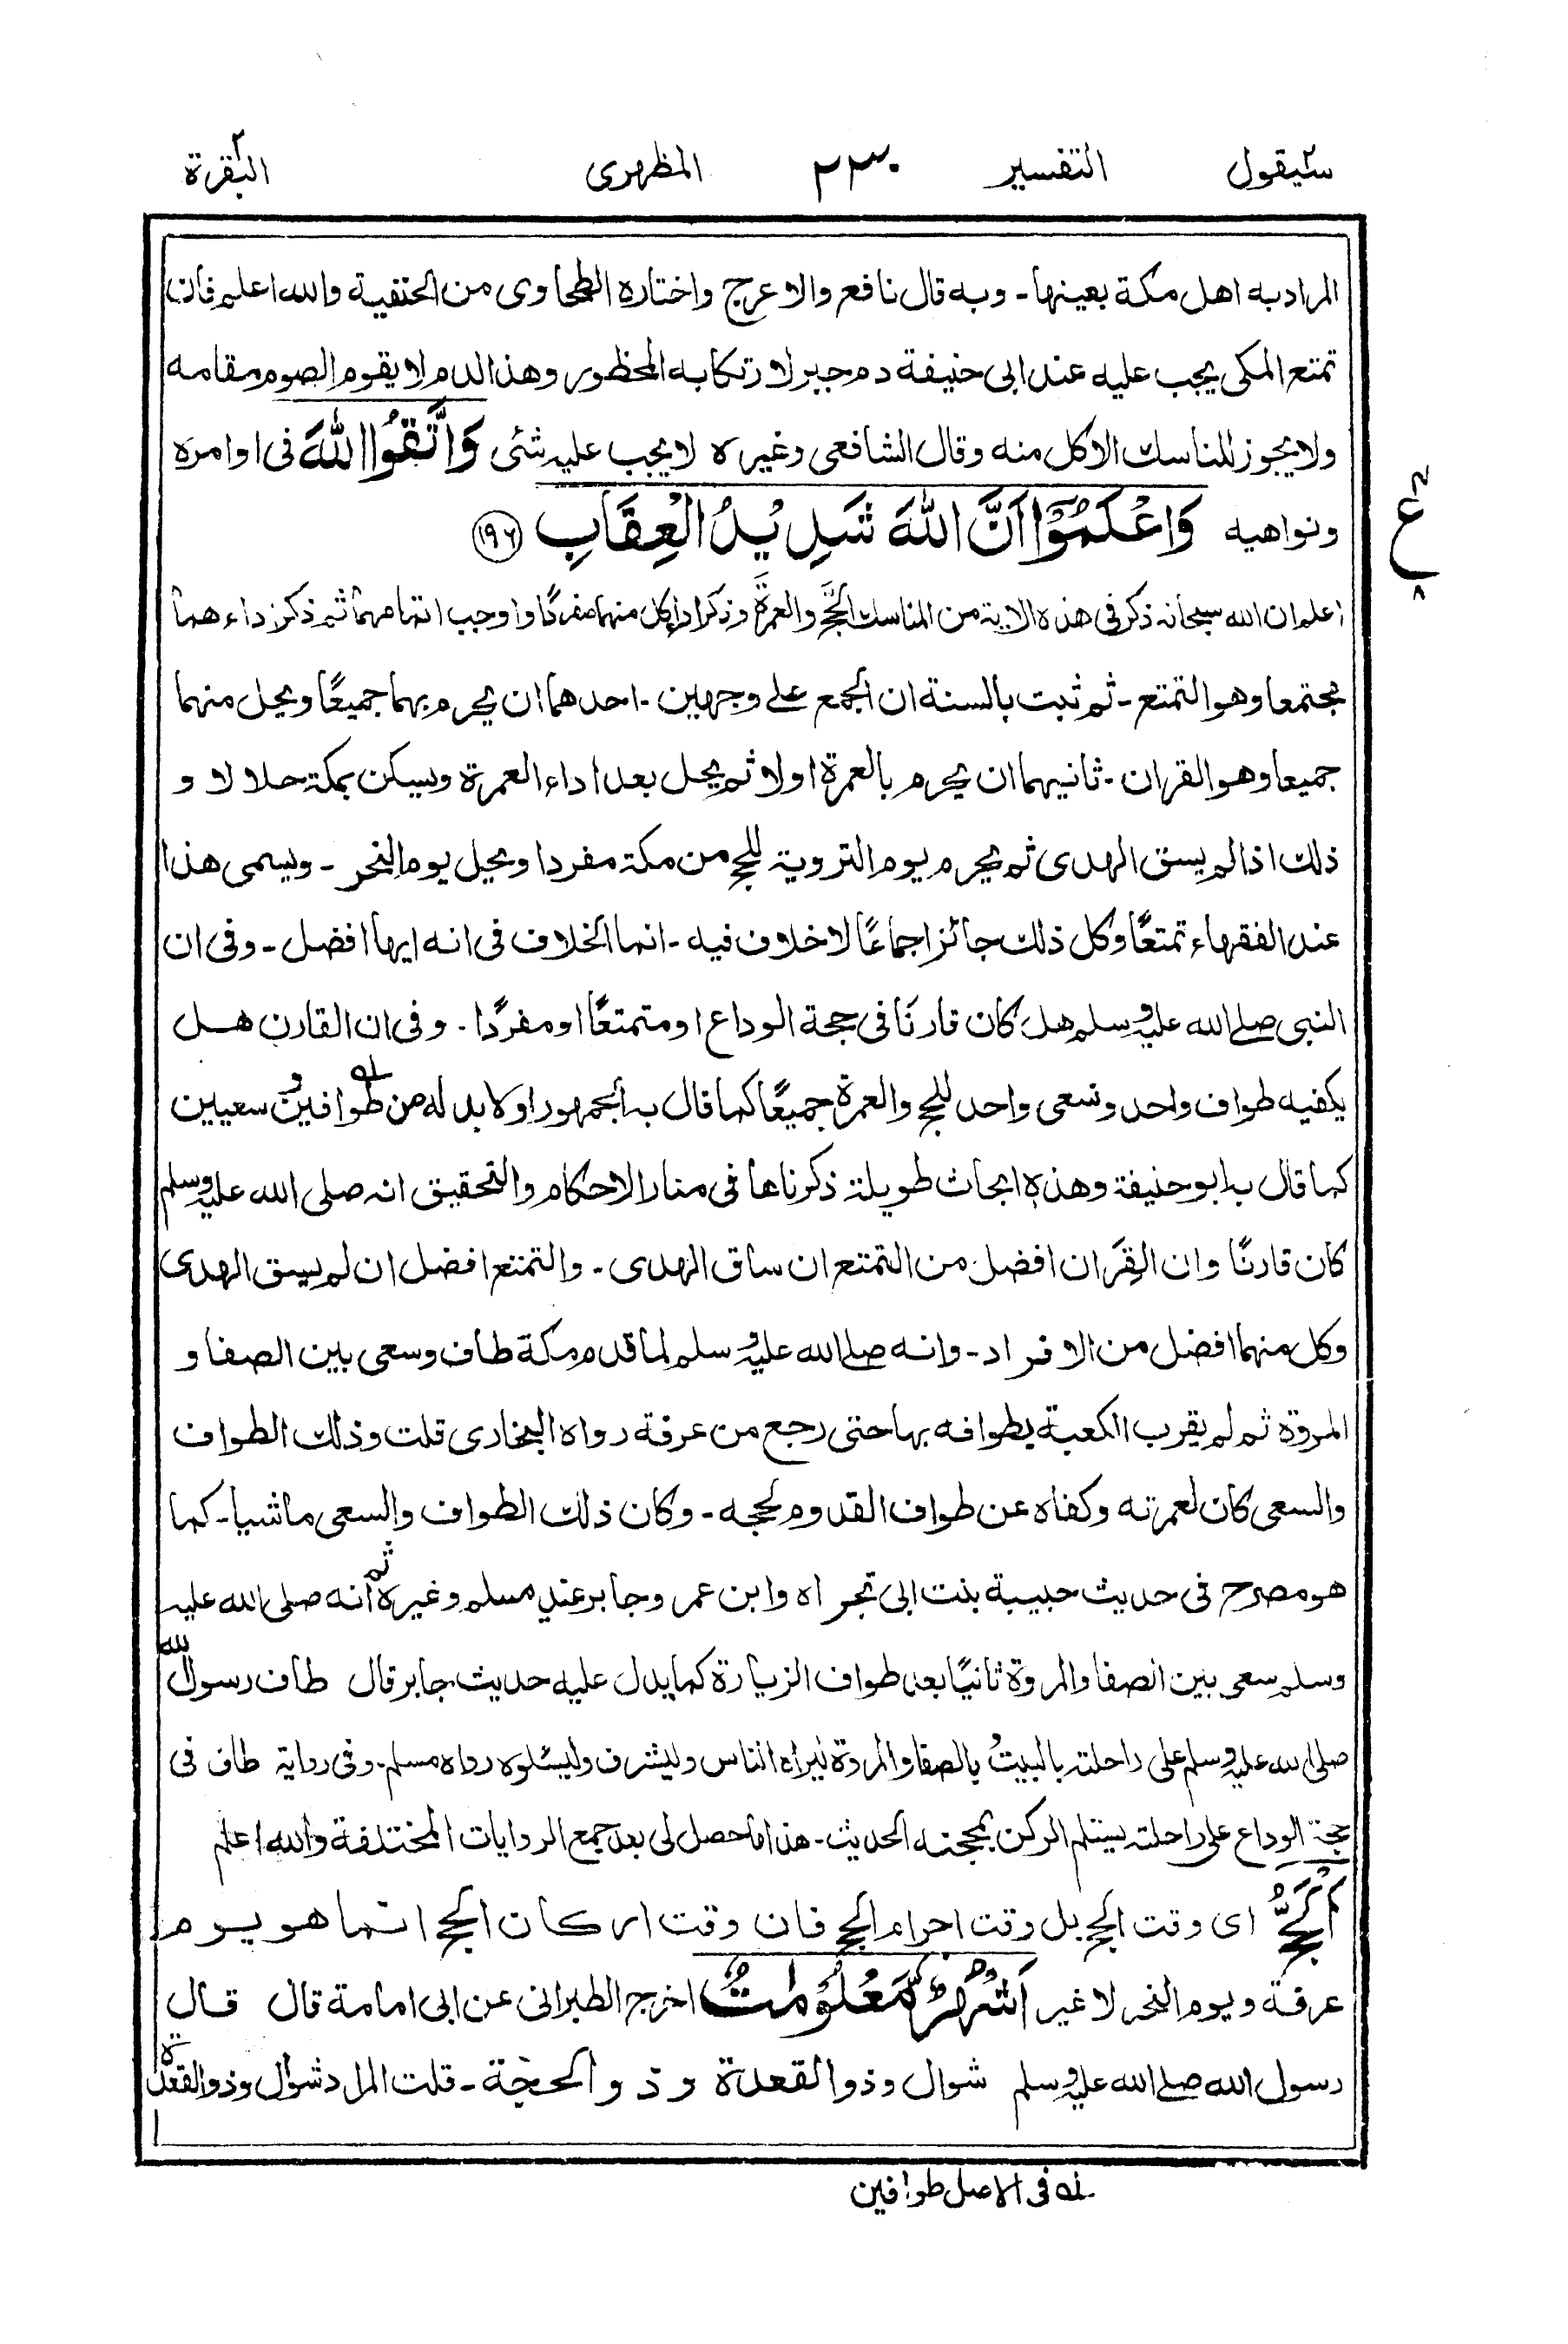 سيقول ٢ التفسير ٢٣٠ المظهرى البقرة ٢
المراد به اهل مكة بعينها - وبه قال نافع والاعرج واختاره الطحاوى من الحنفية والله اعلم فان
تمتع المكى يجب عليه عند ابى حنيفة دم جبر لارتكابه المحظور وهذا الدم لا يقوم الصوم مقامه
ولا يجوز للناسك الاكل منه وقال الشافعى وغيره لا يجب عليه شئى وَاتَّقُوا اللّٰهَ فى اوامره
ونواهيه وَاعْلَمُوْٓا اَنَّ اللّٰهَ شَدِيْدُ الْعِقَابِ ١٩٦
ع ٨
اعلم ان الله سبحانه ذكر فى هذه الاية من المناسك الحَجَّ والعمرةَ وذكر اداء كل منهما مفردًا واوجب اتمامهما ثم ذكر اداءهما
مجتمعا وهو التمتع - ثم ثبت بالسنة ان الجمع على وجهين - احدهما ان يحرم بهما جميعًا ويحل منهما
جميعا وهو القران - ثانيهما ان يحرم بالعمرة اولا ثم يحل بعد اداء العمرة ويسكن بمكة حلالا و
ذلك اذا لم يسق الهدى ثم يحرم يوم التروية للحج من مكة مفردا ويحل يوم النحر - ويسمى هذا
عند الفقهاء تمتعًا وكل ذلك جائز اجماعًا لا خلاف فيه - انما الخلاف فى انه ايها افضل - وفى ان
النبى صلے الله عليه وسلم هل كان قارنًا فى حجة الوداع او متمتعًا او مفردًا - وفى ان القارن هل
يكفيه طواف واحد وسعى واحد للحج والعمرة جميعًا كما قال به الجمهور او لا بد له من طوافين له و سعيين
كما قال به ابو حنيفة وهذه ابحاث طويلة ذكرناها فى منار الاحكام والتحقيق انه صلى الله عليه وسلم
كان قارنًا وان القِرَان افضل من التمتع ان ساق الهدى - والتمتع افضل ان لم يسق الهدى
وكل منهما افضل من الافراد - وانه صلے الله عليه وسلم لما قدم مكة طاف وسعى بين الصفا و
المروة ثم لم يقرب الكعبة بطوافه بها حتى رجع من عرفة رواه البخارى قلت وذلك الطواف
والسعى كان لعمرته وكفاه عن طواف القدوم لحجه - وكان ذلك الطواف والسعى ماشيا - كما
هو مصرح فى حديث حبيبة بنت ابى تجراه وابن عمر وجابر عند مسلم وغيره ثم انه صلى الله عليه
وسلم سعى بين الصفا والمروة ثانيًا بعد طواف الزيارة كما يدل عليه حديث جابر قال طاف رسول الله
صلى الله عليه وسلم على راحلته بالبيت وبالصفا والمروة ليراه الناس وليشرف وليسئلوه رواه مسلم - وفى رواية طاف فى
حجة الوداع على راحلته يستلم الركن بمحجنه الحديث - هذا ما حصل لى بعد جمع الروايات المختلفة والله اعلم
اَلْحَجُّ اى وقت الحج بل وقت احرام الحج فان وقت اركان الحج انما هو يوم
عرفة ويوم النحر لا غير اَشْهُرٌ مَّعْلُوْمٰتٌ اخرج الطبرانى عن ابى امامة قال قال
رسول الله صلے الله عليه وسلم شوال وذو القعدة وذو الحجة - قلت المراد شوال وذو القعدة
له فى الاصل طوافين